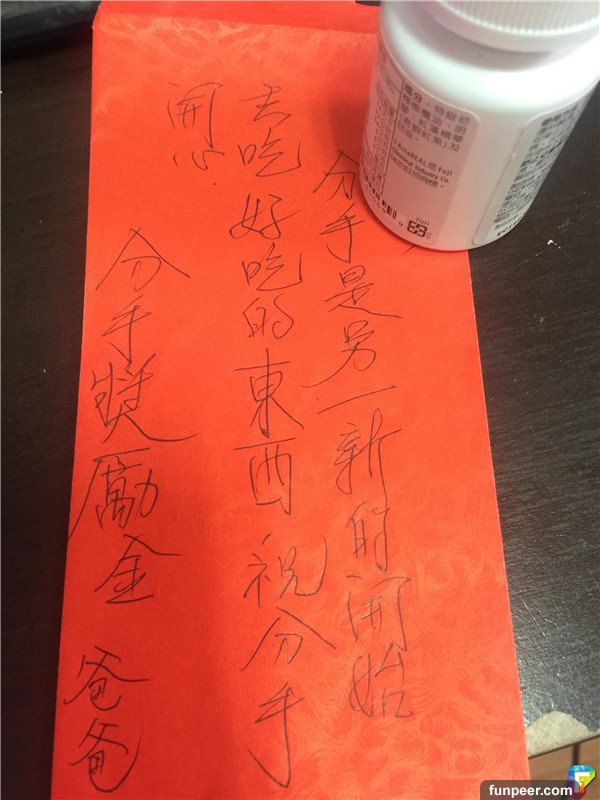 分手是另一新的開始
去吃好吃的東西 祝分手
開心
分手獎勵金 爸爸
特級初
明
紅藻精華
AstaREAL是Fuji
Chemical Industry Co.
funpeer.com